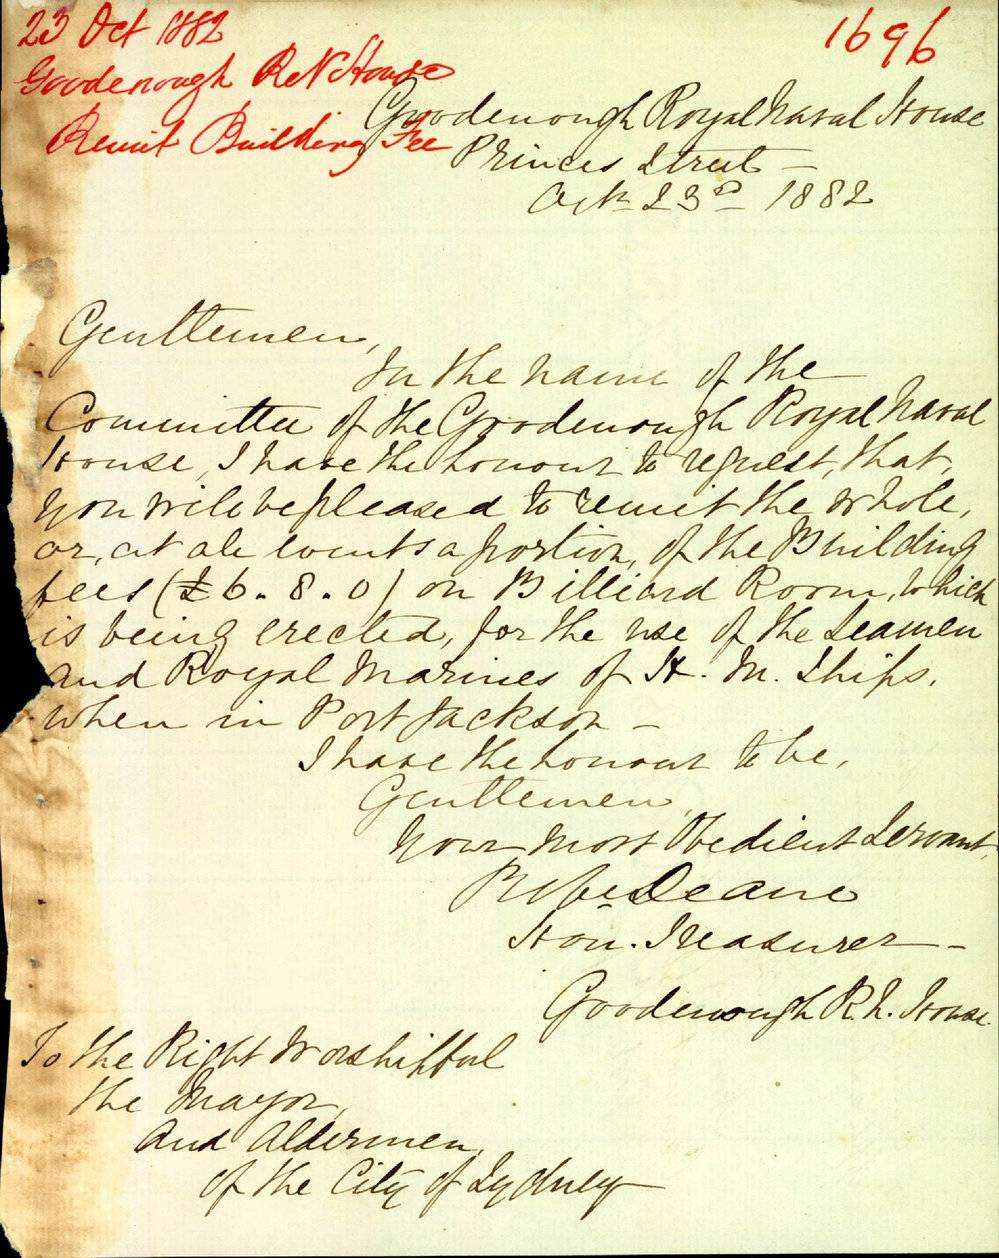 23 Oct 1882
Goodenough R N House
Remit Building Fee
1696
Goodenough Royal Naval House
Princes Street –
Octr 23rd 1882
Gentlemen,
In the name of the
Committee of the Goodenough Royal Naval
House, I have the honour to request, that,
you will be pleased to remit the whole,
or, at all events a portion, of the Building
fees (£6. 8. 0) on Billiard Room, which
is being erected, for the use of the Seamen
and Royal Marines of H. M. Ships,
when in Port Jackson –
I have the honour to be,
Gentlemen,
Your most Obedient Servant,
Deane
Hon. Treasurer –
Goodenough R. N. House.
To the Right Worshipful
the Mayor,
and Aldermen,
of the City of Sydney